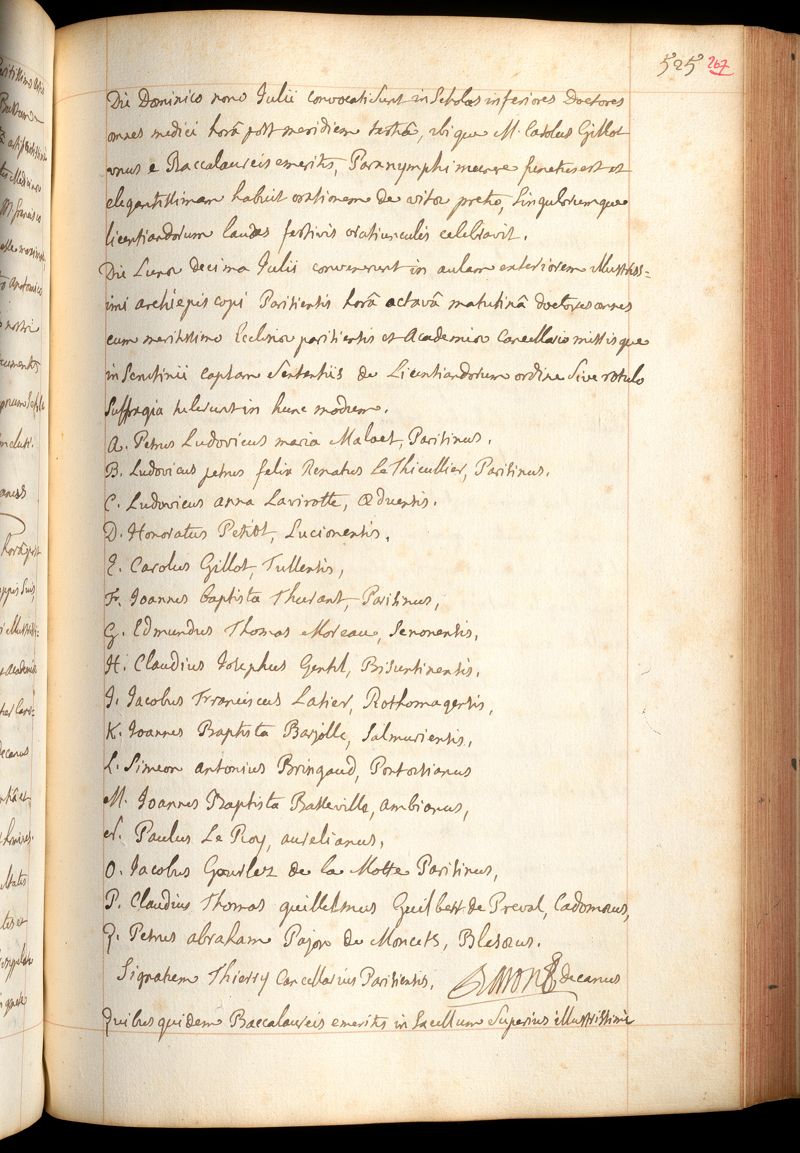 525 267
Die Dominico nono Julii convocati sunt in Scholas inferiores Doctores
omnes medici horâ post meridiem tertiâ, ibique M. Carolus Gillot
unus e Baccalaureis emeritis, Paranymphi munere functus est et
elegantissimam habuit orationem de vitæ pretio, singulorumque
licentiandorum laudes festivis oratiunculis celebravit.
Die Lunæ decima Julii convenerunt in aulam exteriorem illustriss=
imi archiepiscopi Parisiensis horâ octavâ matutinâ doctores omnes
cum meritissimo Ecclesiæ parisiensis et Academiæ Cancellario missisque
in Scrutinii capsam Sententiis de Licentiandorum ordine Sive rotulo
Suffragia tulerunt in hunc modum.
A. Petrus Ludovicus maria Maloet, Parisinus.
B. Ludovicus petrus felix Renatus LeThieullier, Parisinus.
C. Ludovicus anna Lavirotte, Æduensis.
D. Honoratus Petiot, Lucionensis,
E. Carolus Gillot, Tullensis,
Fr. Joannes baptista Thurant, Parisinus,
G. Edmundus Thomas Moreau, Senonensis,
H. Claudius Josephus Gentil, Bisuntinensis,
J. Jacobus Franciscus Latier, Rothomagensis,
K. Joannes Baptista Barjolle, Salmuriensis,
L. Simeon antonius Bringaud, Pontosianus
M. Joannes Baptista Basseville, ambianus,
N. Paulus Le Roy, aurelianus,
O. Jacobus Gourlez de la Motte Parisinus,
P. Claudius Thomas guillelmus Guilbert de Preval, Cadomæus,
Q. Petrus abraham Pajon de Moncets, Blesæus.
Signatum Thierry Cancellarius Parisiensis, Baron decanus
Quibus quidem Baccalaureis emeritis in Sacellum Superius illustrissimi